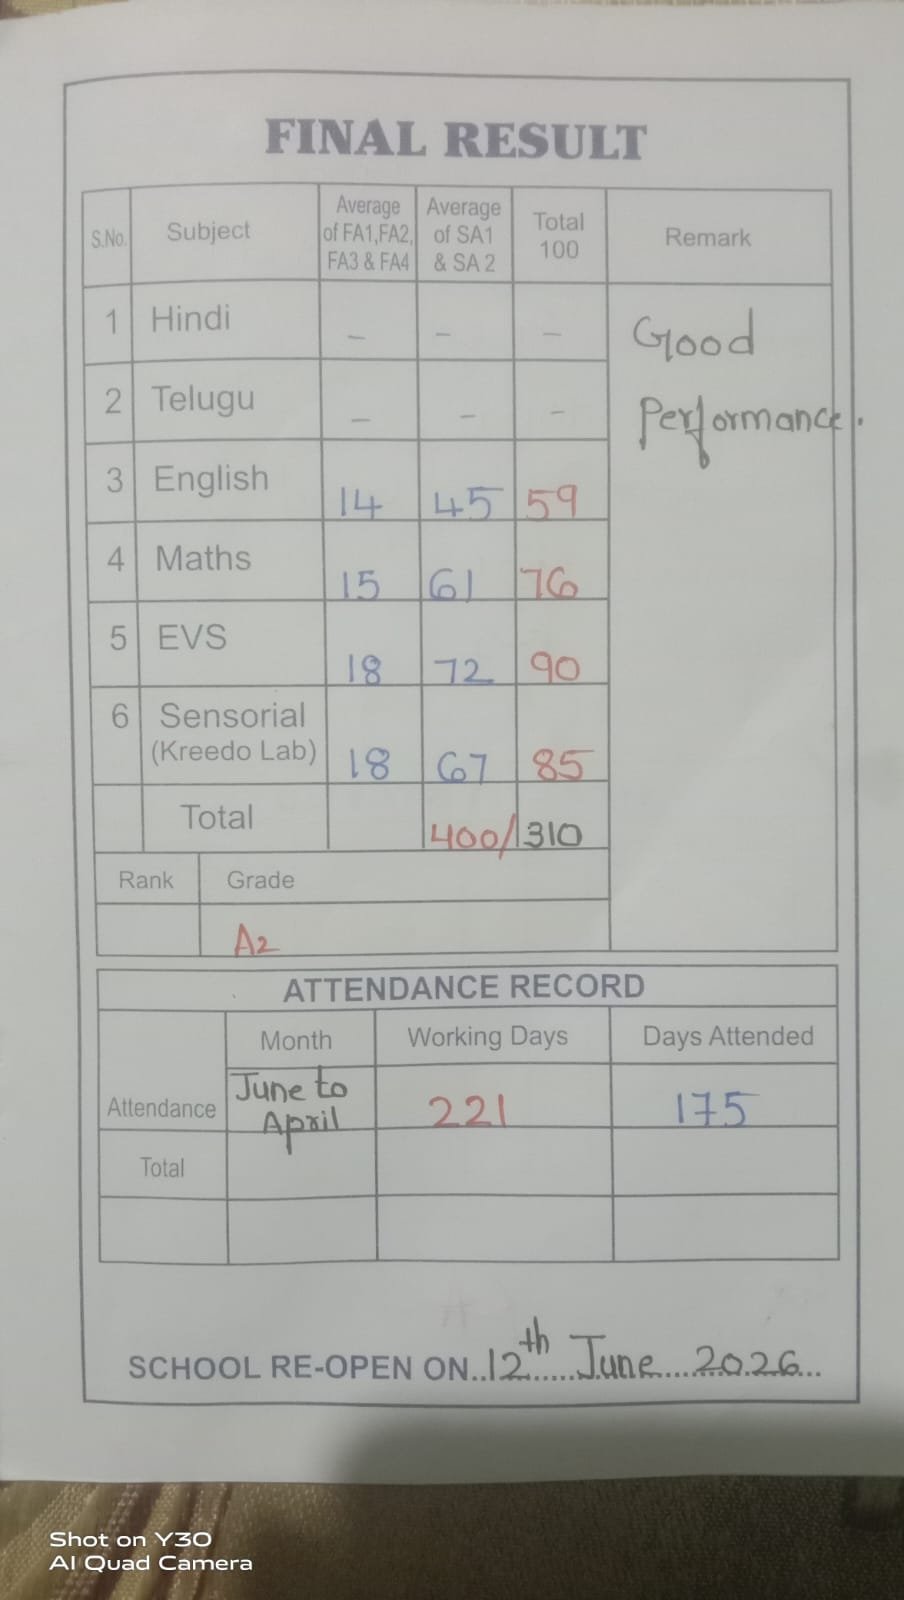 FINAL RESULT
S.No. Subject Average of FA1,FA2, FA3 & FA4 Average of SA1 & SA 2 Total 100 Remark
1 Hindi – – – Good
2 Telugu – – – Performance.
3 English 14 45 59
4 Maths 15 61 76
5 EVS 18 72 90
6 Sensorial
(Kreedo Lab) 18 67 85
Total 400/310
Rank Grade
A2
ATTENDANCE RECORD
Month Working Days Days Attended
Attendance June to April 221 175
Total
SCHOOL RE-OPEN ON..12th......June....2026...
Shot on Y30
AI Quad Camera